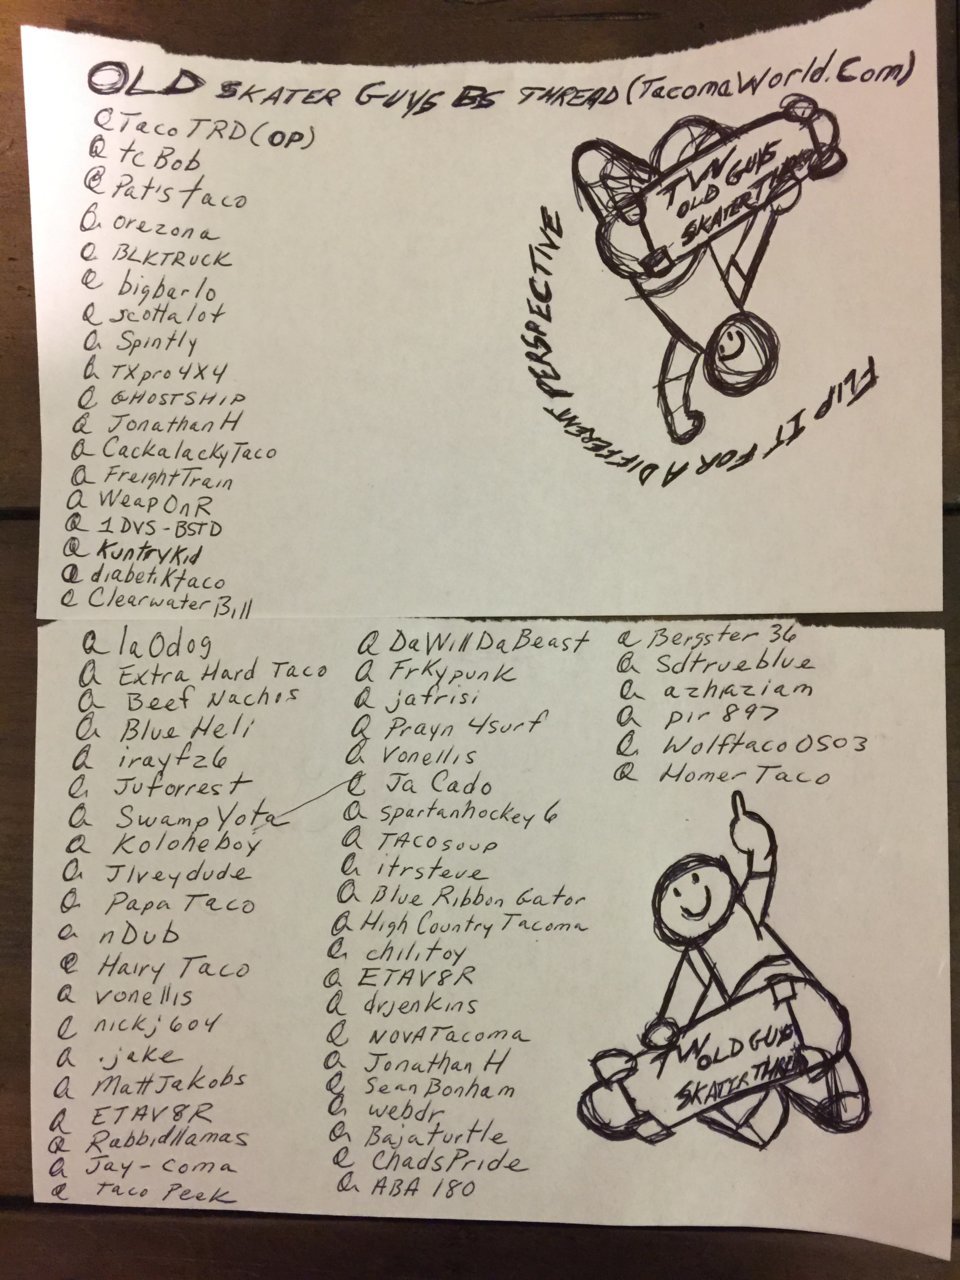 OLD SKATER GUYS BS THREAD (TacomaWorld.Com)
@TacoTRD (OP)
@ tcBob
@ Pat'staco
@ orezona
@ BLKTRUCK
@ bigbarlo
@ scottalot
@ Spintly
@ TXpro4X4
@ GHOSTSHIP
@ JonathanH
@ CackalackyTaco
@ FreightTrain
@ WeapOnR
@ 1DVS-BSTD
@ KuntryKid
@ diabetiKtaco
@ ClearwaterBill
TW
OLD GUYS
SKATER THREAD
FLIP IT FOR A DIFFERENT PERSPECTIVE
@ la0dog
@ Extra Hard Taco
@ Beef Nachos
@ Blue Heli
@ irayfz6
@ Juforrest
@ SwampYota
@ Koloheboy
@ Jlveydude
@ Papa Taco
@ nDub
@ Hairy Taco
@ vonellis
@ nickj604
@ .jake
@ MattJakobs
@ ETAV8R
@ Rabbidllamas
@ Jay-coma
@ Taco Peek
@ DaWillDaBeast
@ Frkypunk
@ jafrisi
@ Prayn 4surf
@ Vonellis
@ Ja Cado
@ spartanhockey6
@ TACOsoup
@ itrsteve
@ Blue Ribbon Gator
@ High Country Tacoma
@ chilitoy
@ ETAV8R
@ drjenkins
@ NOVATacoma
@ Jonathan H
@ SeanBonham
@ webdr
@ Bajaturtle
@ ChadsPride
@ ABA 180
@ Bergster 36
@ Sdtrueblue
@ azhaziam
@ pir 897
@ Wolftaco0503
@ HomerTaco
TW
OLD GUYS
SKATER THREAD